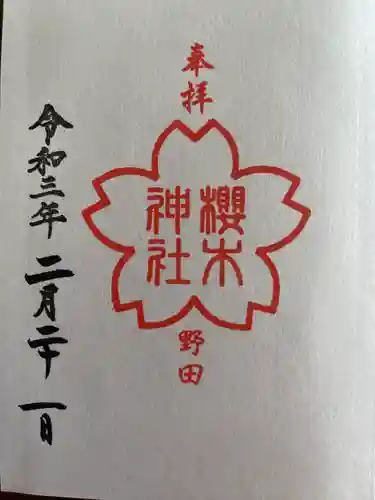 奉拝
櫻木
神社
野田
令和三年二月二十一日